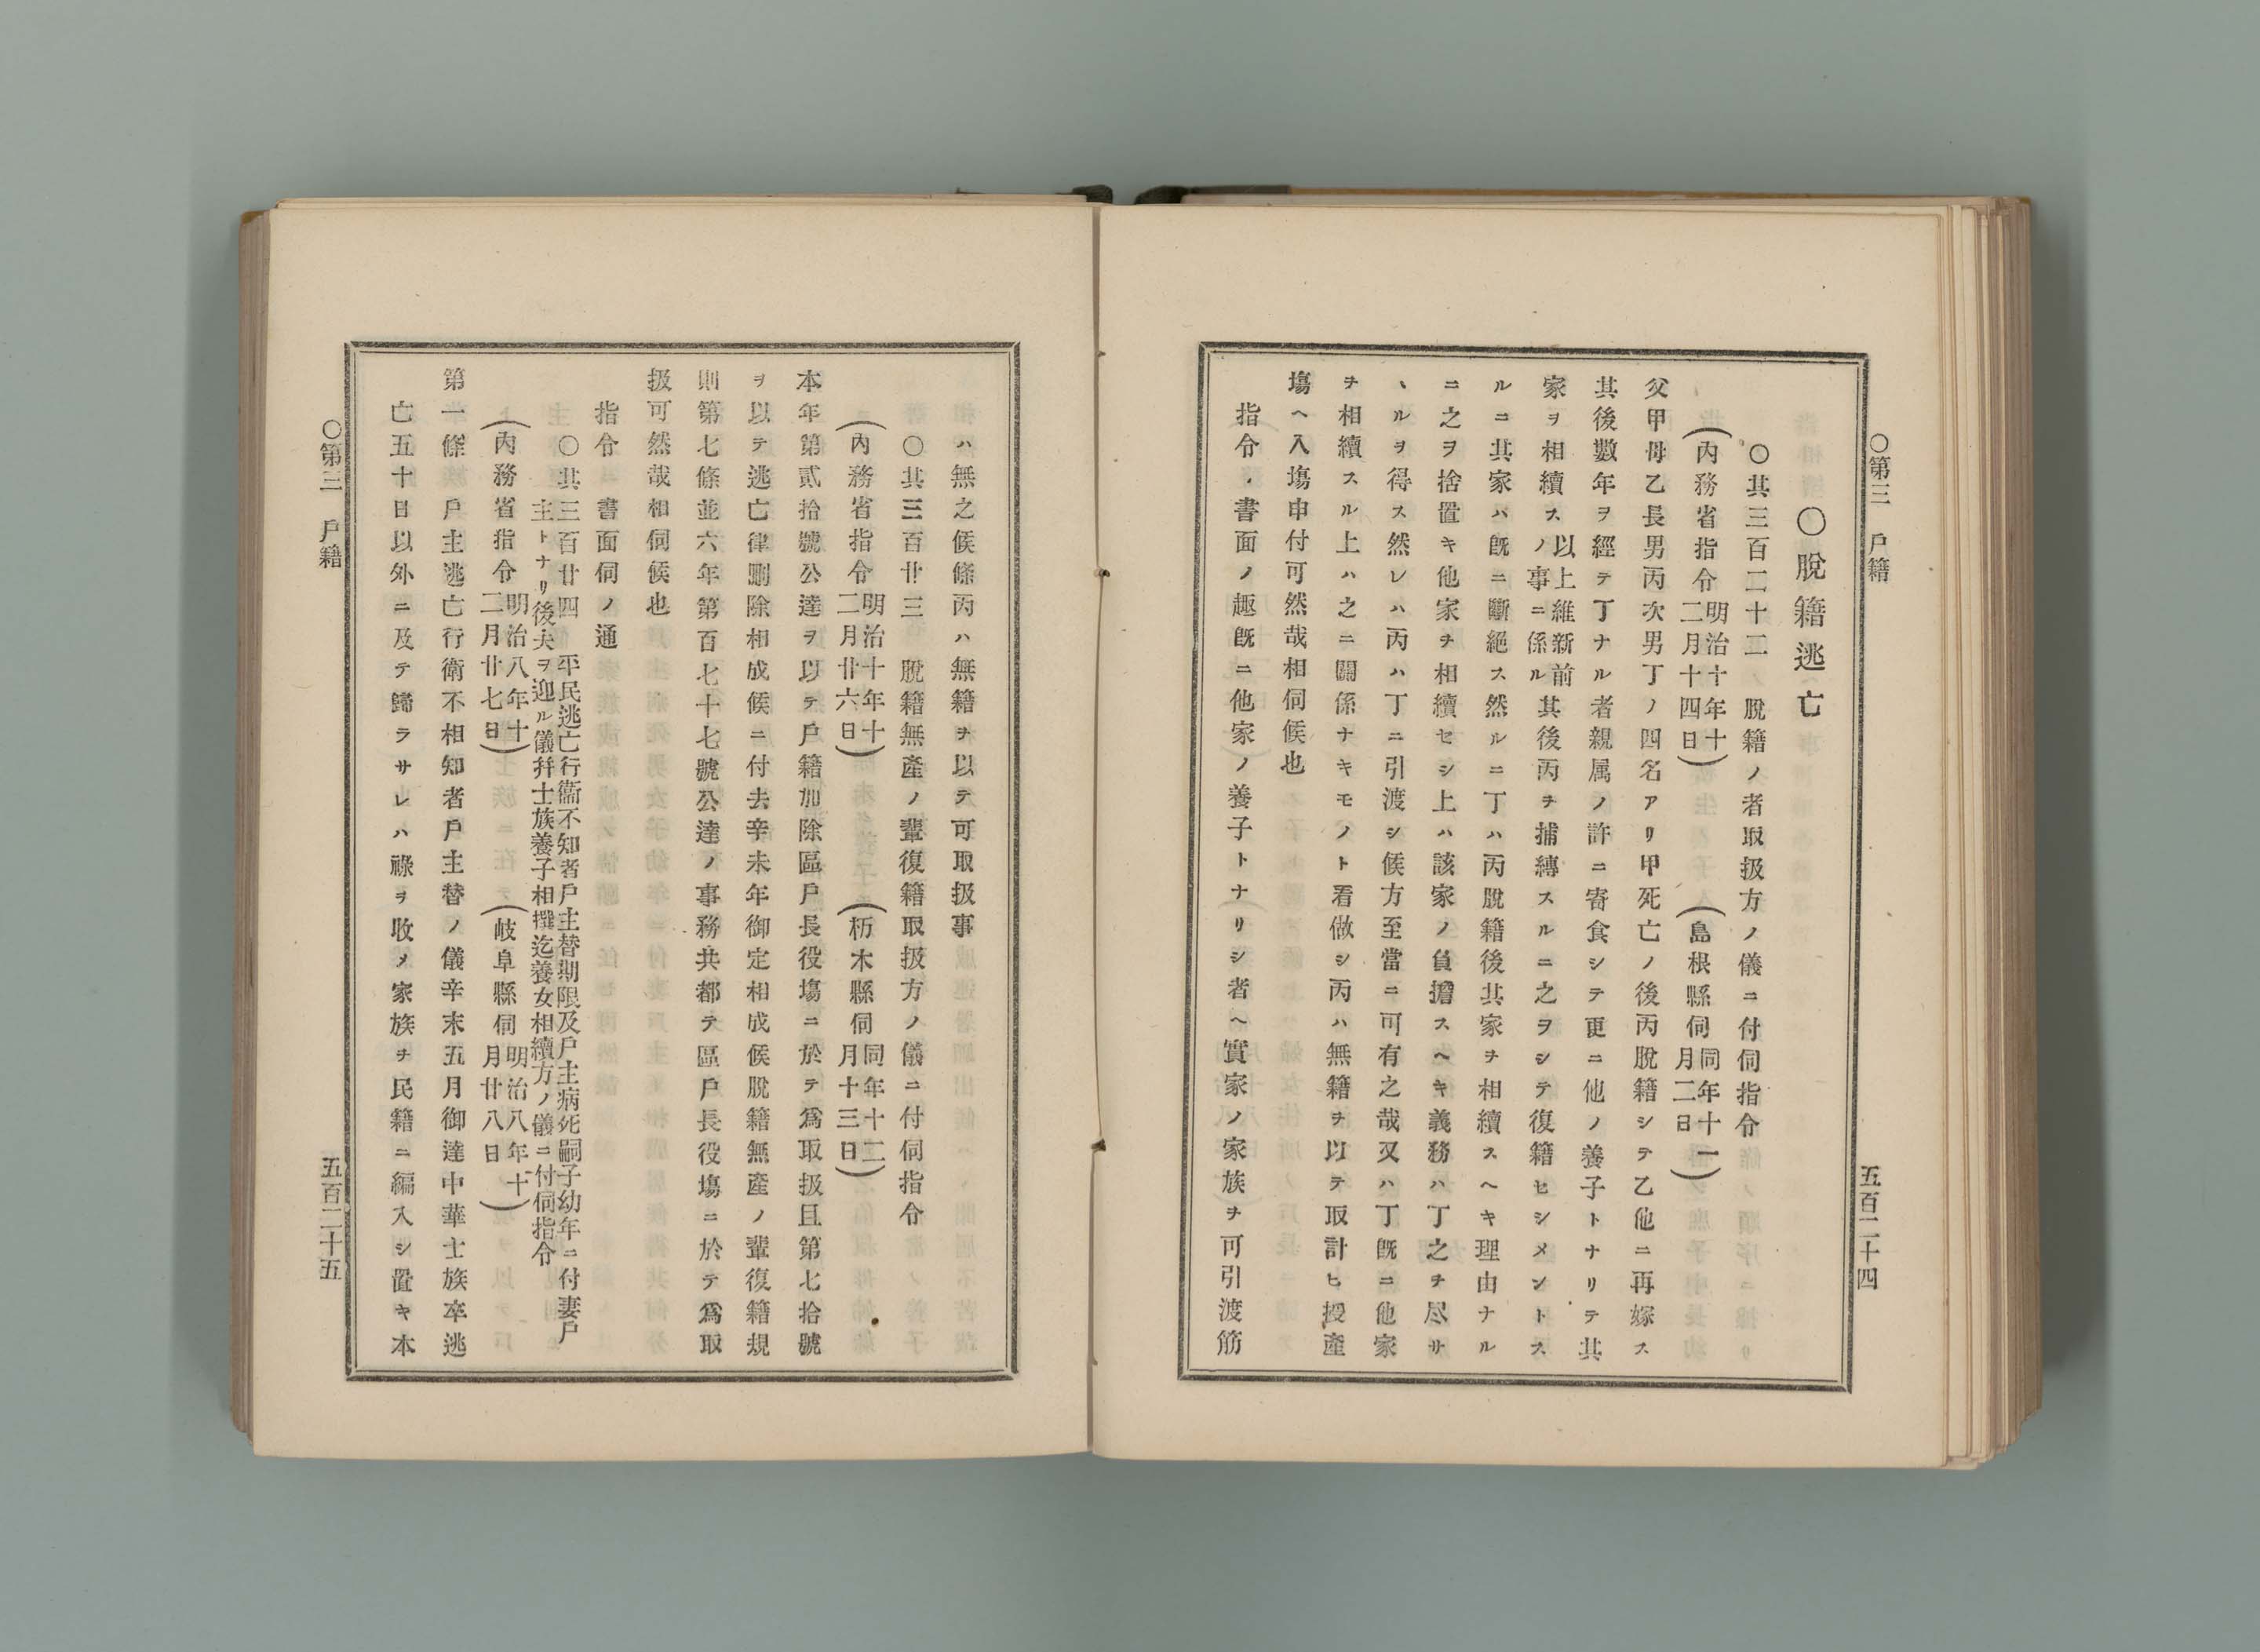 〇第三　戶籍
五百二十四
〇脫籍逃亡
〇其三百二十二ノ脫籍ノ者取扱方ノ儀ニ付伺指令
（內務省指令明治十年十二月十四日）（島根縣伺同年十一月二日）
父甲母乙長男丙次男丁ノ四名アリ甲死亡ノ後丙脫籍シテ乙他ニ再嫁ス
其後數年ヲ經テ丁ナル者親属ノ許ニ寄食シテ更ニ他ノ養子トナリテ其
家ヲ相續ス以上維新前ノ事ニ係ル其後丙ヲ捕縳スルニ之ヲシテ復籍セシメントス
ルニ其家ハ旣ニ斷絕ス然ルニ丁ハ丙脫籍後其家ヲ相續スヘキ理由ナル
ニ之ヲ捨置キ他家ヲ相續セシ上ハ該家ノ負擔スヘキ義務ハ丁之ヲ尽サ
ヽルヲ得ス然レハ丙ハ丁ニ引渡シ候方至當ニ可有之哉又ハ丁旣ニ他家
ヲ相續スル上ハ之ニ關係ナキモノト看做シ丙ハ無籍ヲ以テ取計ヒ授產
塲ヘ入塲申付可然哉相伺候也
指令、書面ノ趣旣ニ他家ノ養子トナリシ者ヘ實家ノ家族ヲ可引渡筋
ハ無之候條丙ハ無籍ヲ以テ可取扱事
〇其三百廿三　脫籍無產ノ輩復籍取扱方ノ儀ニ付伺指令
（內務省指令明治十年十二月廿六日）（栃木縣伺同年十二月十三日）
本年第貳拾號公達ヲ以テ戶籍加除區戶長役塲ニ於テ爲取扱且第七拾號
ヲ以テ逃亡律刪除相成候ニ付去辛未年御定相成候脫籍無產ノ輩復籍規
則第七條並六年第百七十七號公達ノ事務共都テ區戶長役塲ニ於テ爲取
扱可然哉相伺候也
指令　書面伺ノ通
〇其三百廿四　平民逃亡行衞不知者戶主替期限及戶主病死嗣子幼年ニ付妻戶
主トナリ後夫ヲ迎ル儀幷士族養子相撰迄養女相續方ノ儀ニ付伺指令
（內務省指令明治八年十二月廿七日）（岐阜縣伺明治八年十月廿八日）
第一條　戶主逃亡行衞不相知者戶主替ノ儀辛未五月御達中華士族卒逃
亡五十日以外ニ及テ歸ラサレハ祿ヲ收メ家族ヲ民籍ニ編入シ置キ本
〇第三　戶籍
五百二十五